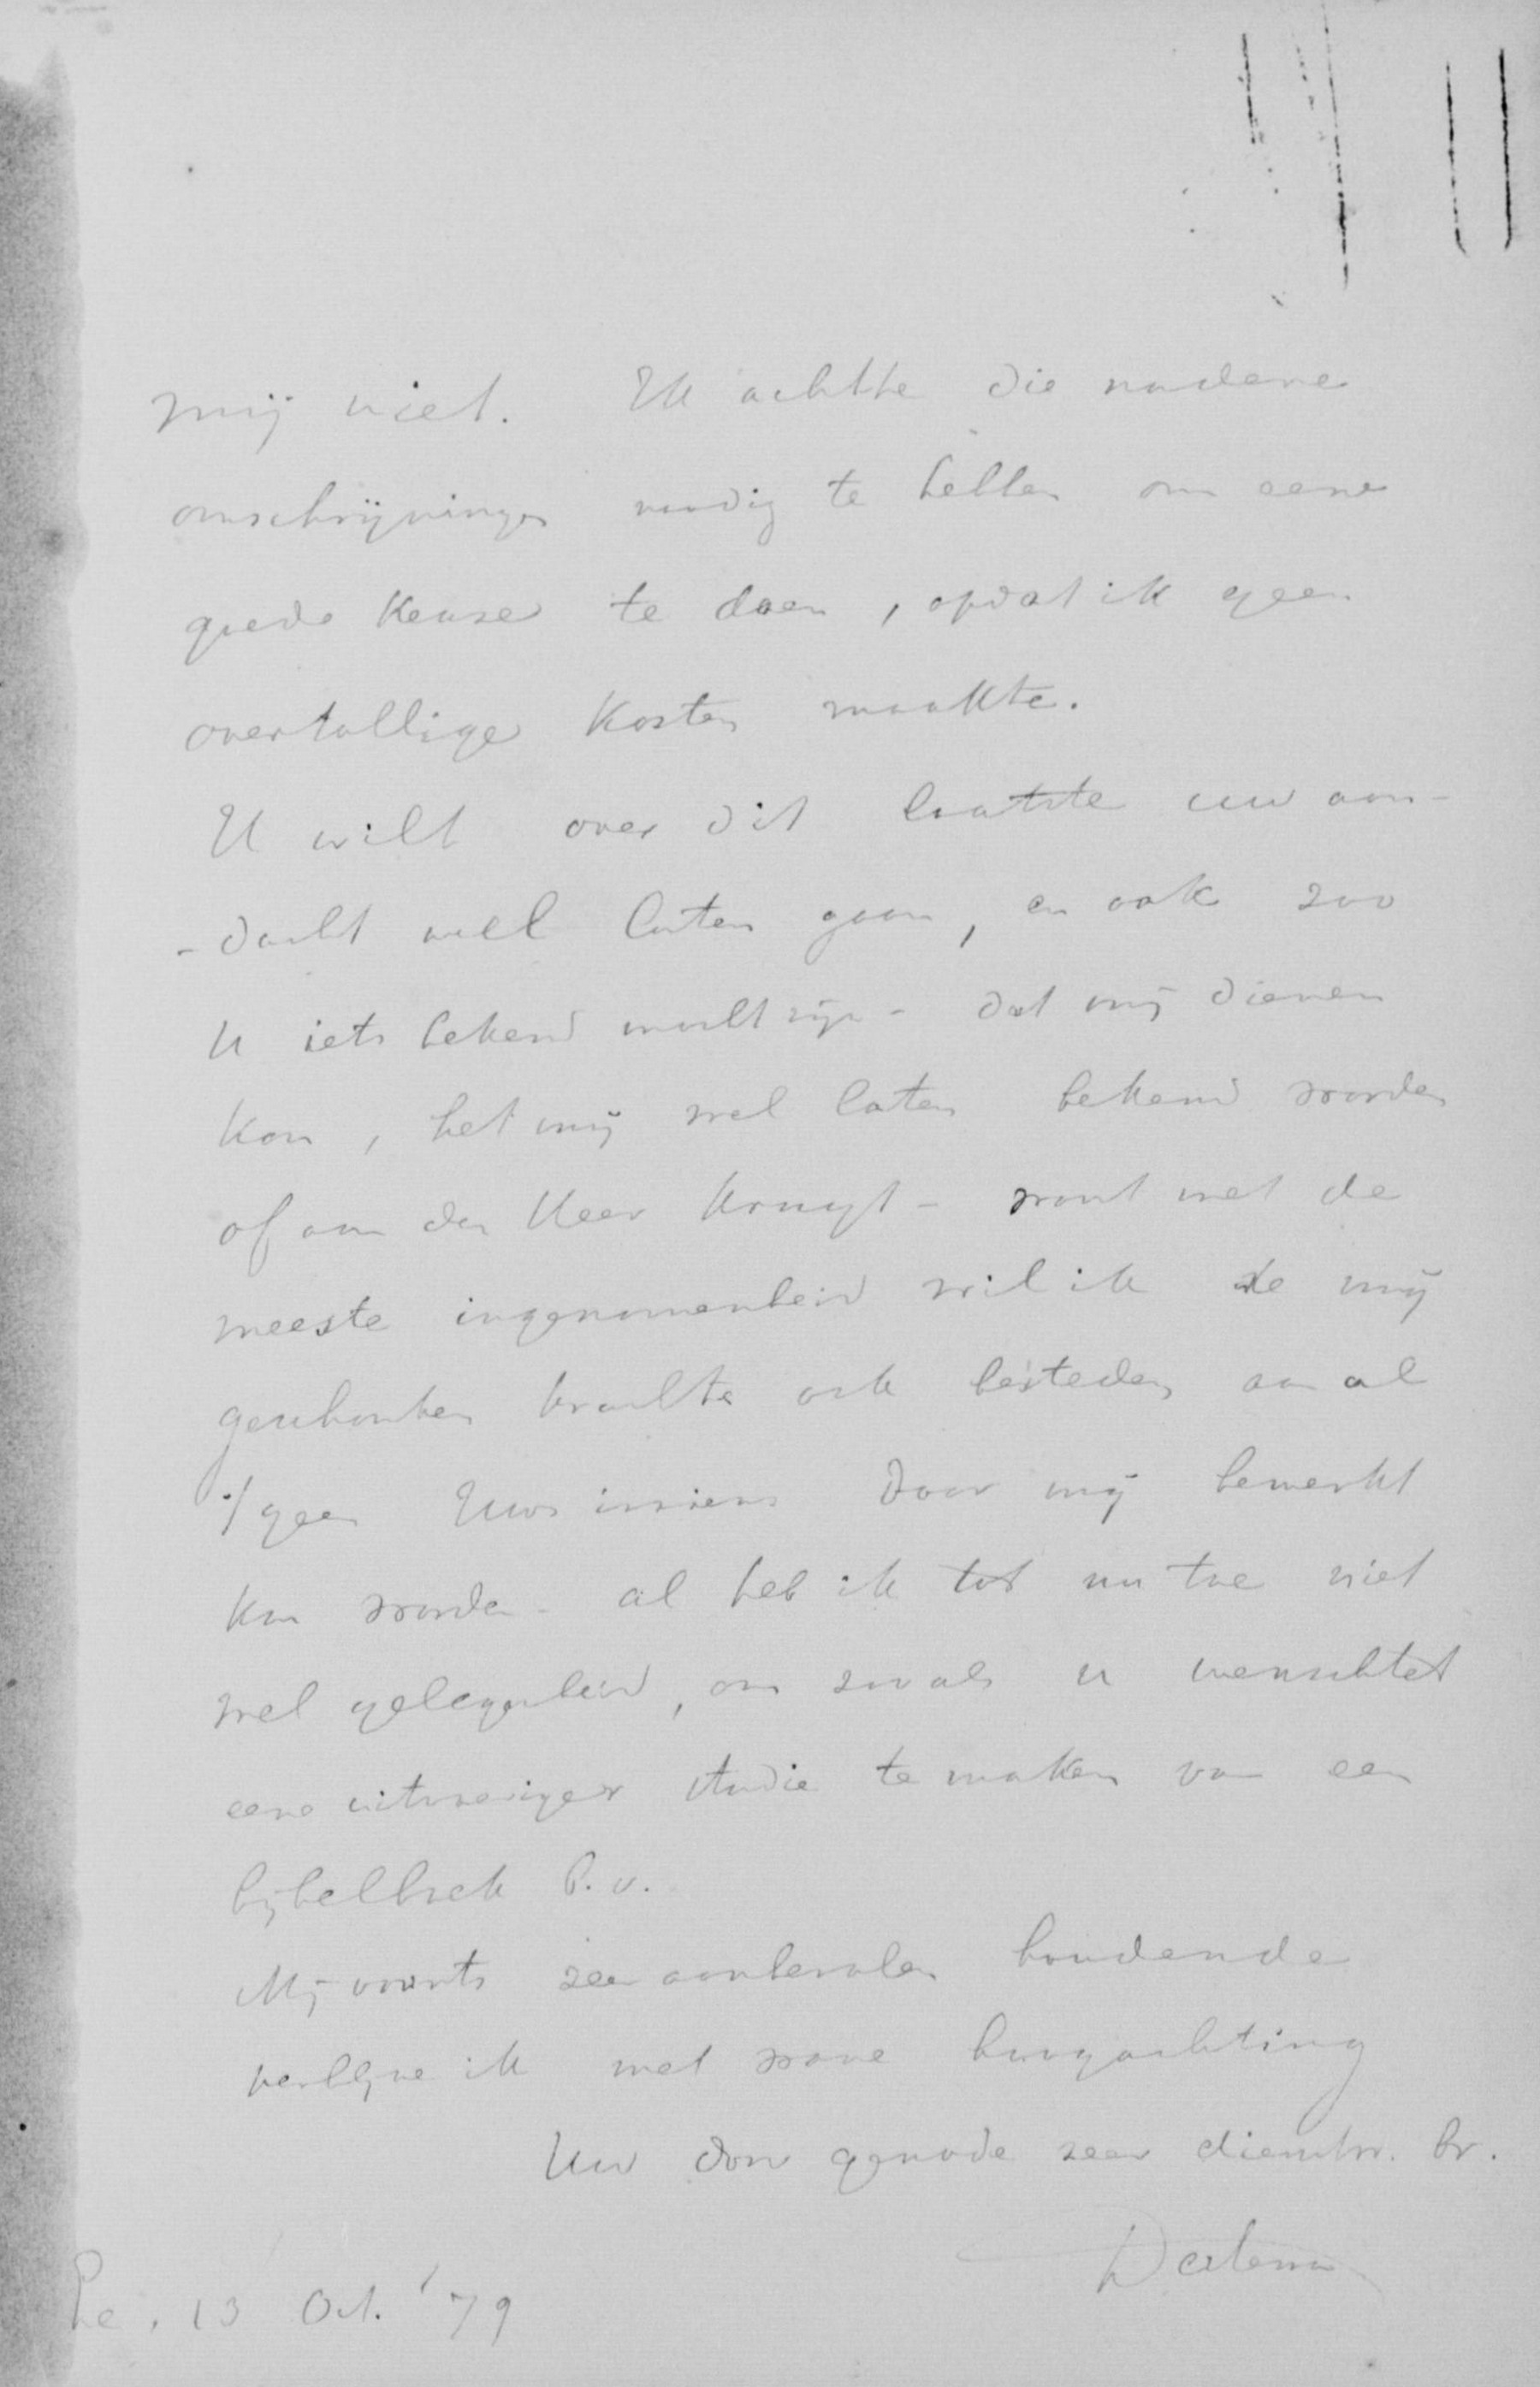 mij niet. Ik achtte die nadere
omschrijvingen noodig te hebben om eene
goede keuze te doen, opdat ik geen
overtollige kosten maakte.
U wilt over dit laatste uw aan-
-dacht wel laten gaan, en ook zoo
U iets bekend mocht zijn - dat mij dienen
kon, het mij wel laten bekend worden
of aan den Heer Kruyt - want met de
meeste ingenomenheid wil ik de mij
geschonken krachten ook besteden aan al
'tgeen Uws inziens door mij bewerkt
kan worden - al heb ik tot nu toe niet
wel gelegenheid, om zooals u wenschtet
eene uitvoeriger studie te maken van een
bijbelboek b.v.
Mij voorts zeer aanbevolen houdende
verblijve ik met ware hoogachting
Uw door genade zeer dienstw. br.
13 Oct. '79